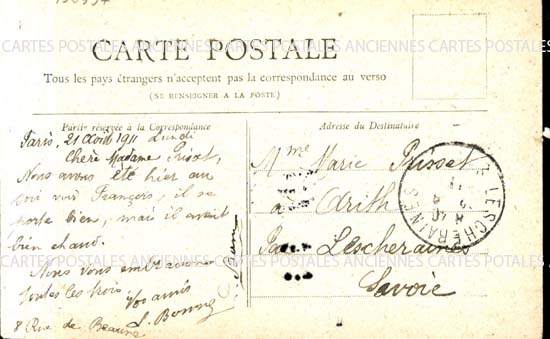 CARTE POSTALE
Tous les pays étrangers n'acceptent pas la correspondance au verso
(SE RENSEIGNER A LA POSTE)
Partie réservée à la Correspondance
Paris, 21 Août 1911 Lundi
Chère Madame Prisset,
Nous avons été hier au
soir voir François, il se
porte bien, mai il avait
bien chaud.
Nous vous embrassons
toutes les trois.
Vos amis
8 Rue de Beaune
Adresse du Destinataire
Mme Marie Prisset
à Arith
Par Lescheraines
Savoie
LESCHERAINES
CARTES POSTALES ANCIENNES CARTES POSTALES ANCIENNES